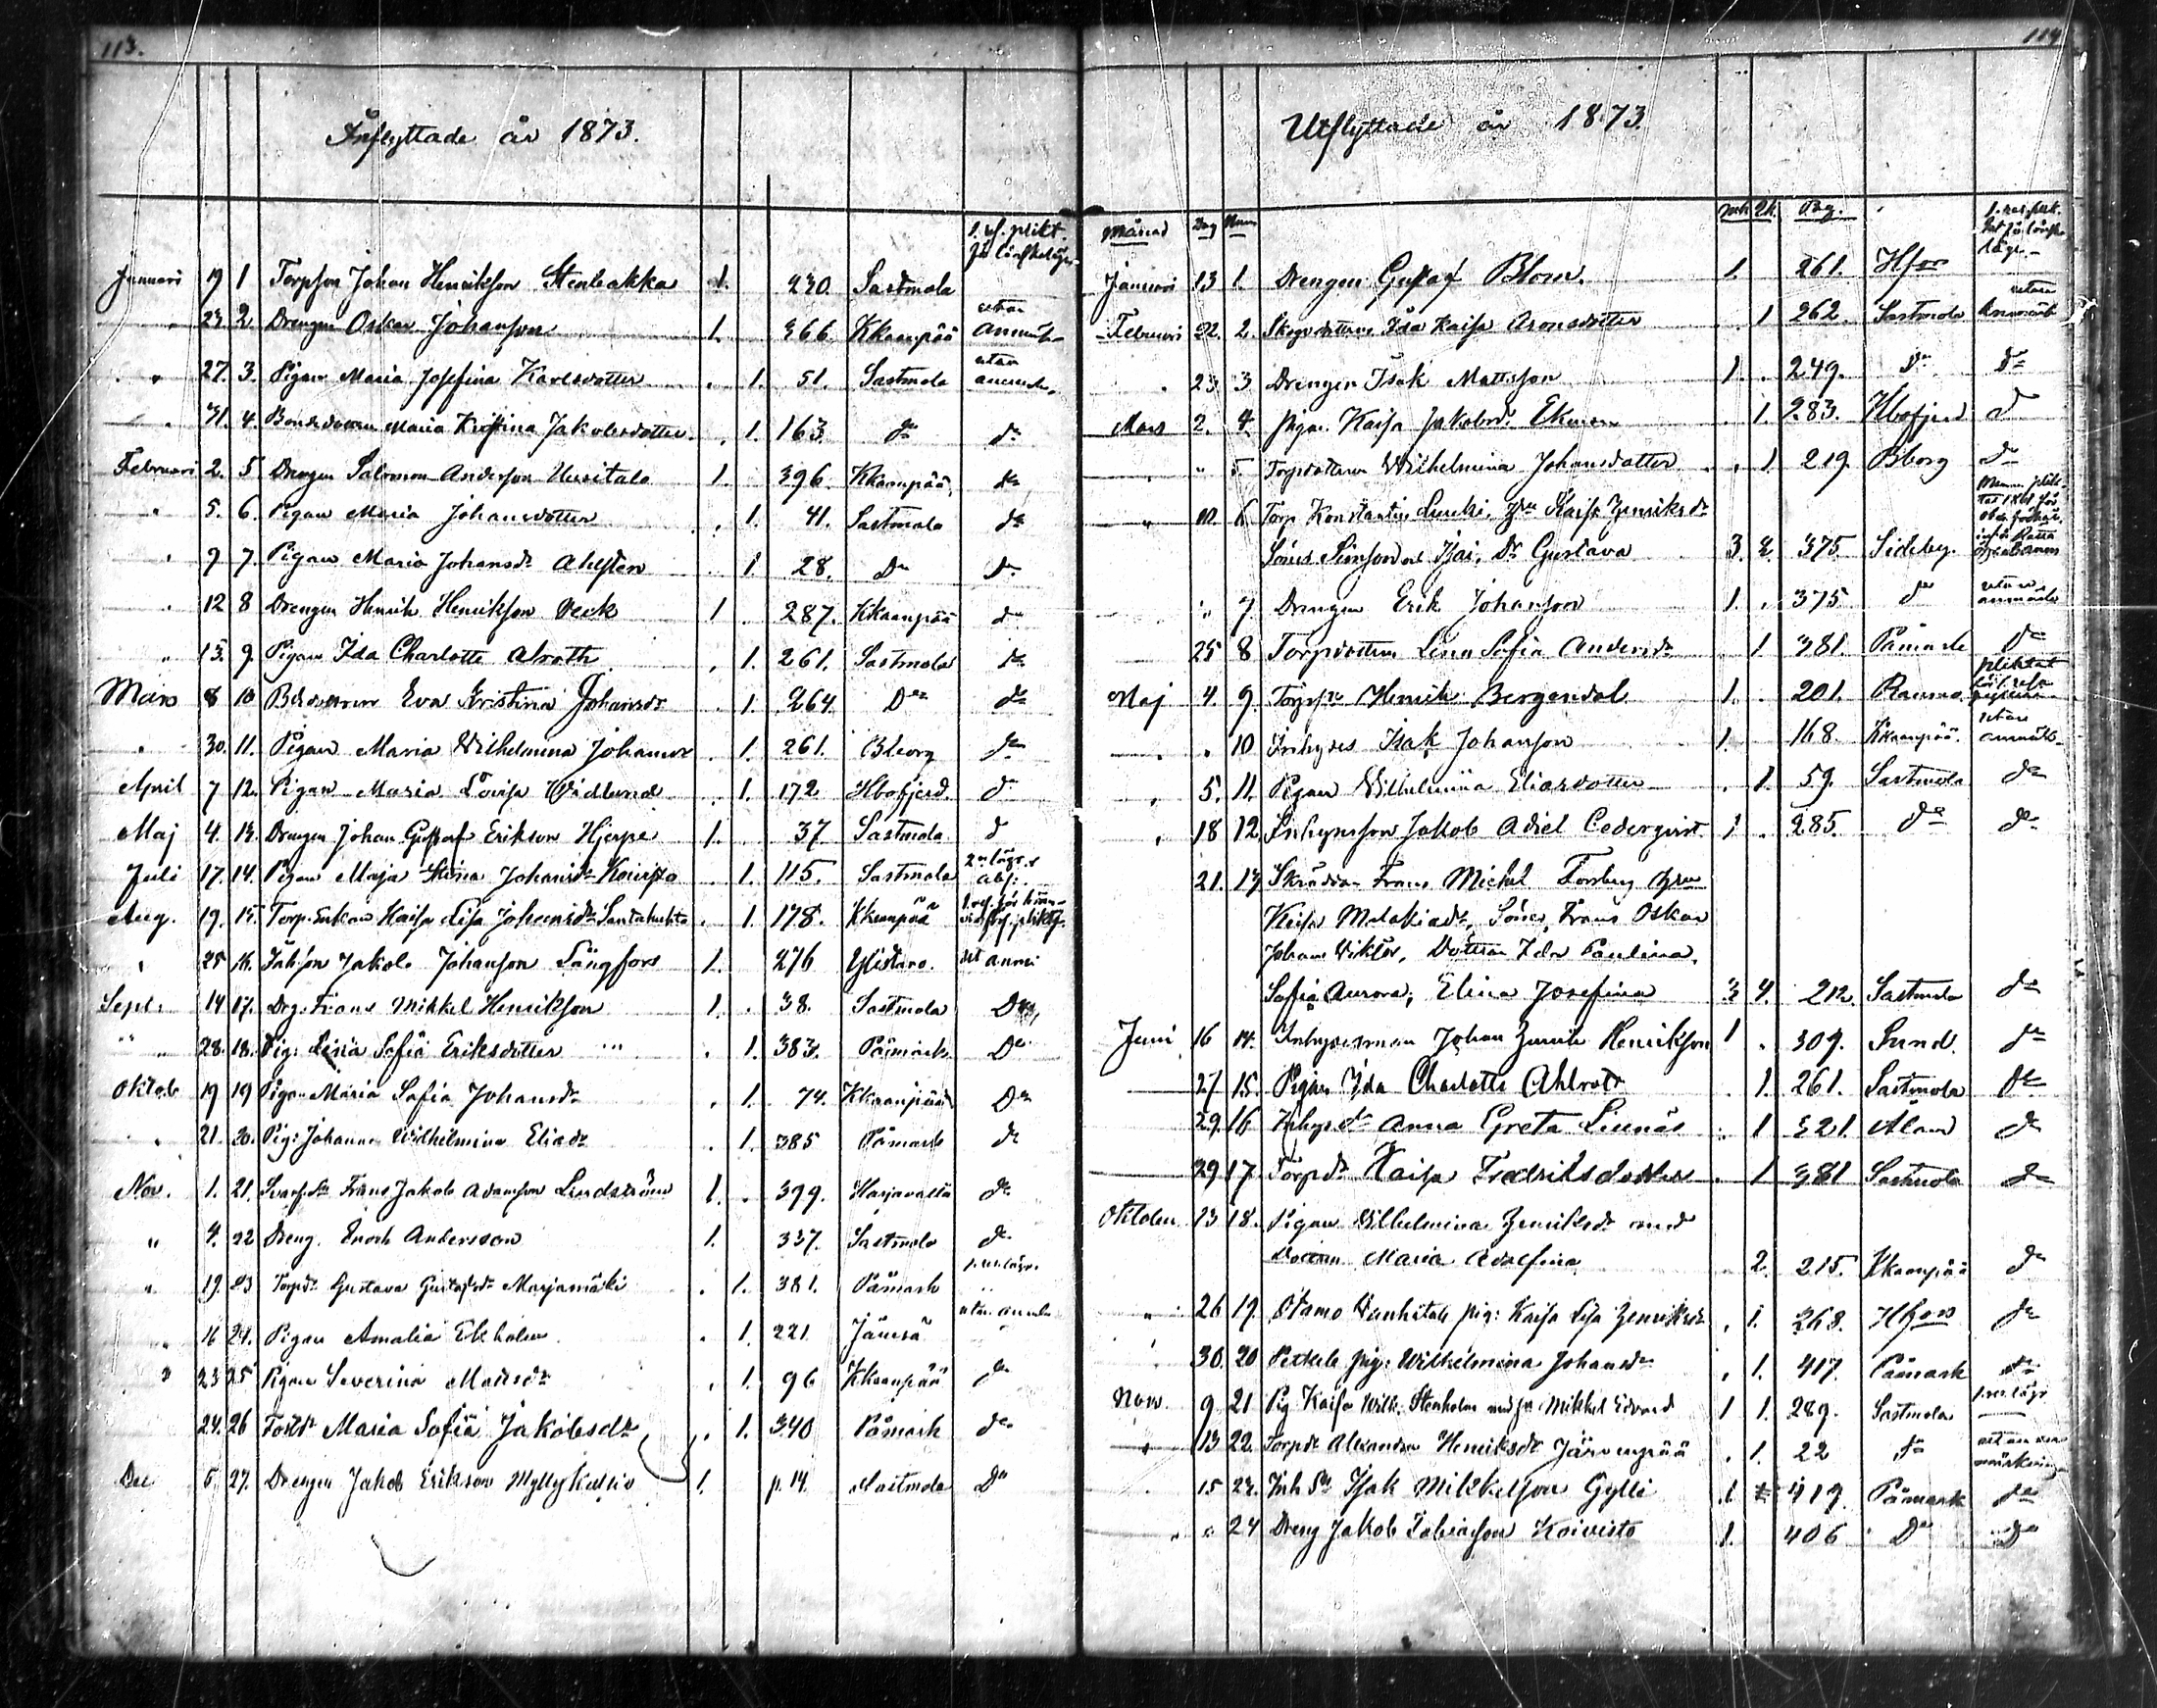 113.
Inflyttade år 1873.
Januari 19 1 Torpson Johan Henrikson Stenbakka 1. 230. Sastmola
23 2. Drengen Oskar Johanson 1. 366. Kkaanpää utan anmärk.
" 27. 3. Pigan Maria Josefina Karlsdotter . 1. 51. Sastmola utan anmärk.
" 31. 4. Bondedottren Maria Kristina Jakobsdotter . 1. 163. do do
Februari 2. 5 Drengen Salomon Anderson Uusitalo 1. 396. Kkaanpää do
" 5. 6. Pigan Maria Johansdotter . 1. 41. Sastmola do
" 9 7. Pigan Maria Johansdr Ahlsten . 1. 28. Do Do
" 12 8 Drengen Henrik Henrikson Veck 1 . 287. Kkaanpää do
" 13. 9. Pigan Ida Charlotte Alroth . 1. 261. Sastmola do
Mars 8 10 Eva Kristina Johansdr . 1. 264. Do do
" 30. 11. Pigan Maria Wilhelmina Johansdr . 1. 261. Bborg do
April 7 12. Pigan Maria Lovisa Widlund . 1. 172 Kbofjerd. do
Maj 4. 13. Drengen Johan Gustaf Erikson Hjerpe 1. 37. Sastmola d
Juli 17. 14. Pigan Maja Stina Johansdr Koivisto . 1. 115. Sastmola
Aug. 19. 15. Torp. Enkan Kaisa Lisa Johansdr Santahuhta . 1. 178. Kkaanpää
" 25 16. Jakob Johanson Långfors 1. 276 Ylistaro.
Sept. 14 17. Drg. Frans Mikkel Henrikson 1. . 38. Sastmola Do
" 28. 18. Pig. Lena Sofia Eriksdotter . 1. 383. Påmark Do
Oktob 19 19 Pigan Maria Sofia Johansdr . 1. 74. Kkaanpää Do
" 21. 20. Pig: Johanna Wilhelmina Eliadr . 1. 385 Påmark do
Nov. 1. 21. Frans Jakob Adamson Lindström 1. . 399. Harjavalta do
" 4. 22 Dreng. Enoch Andersson 1. 337. Sastmola do
" 19. 23 Torpdr Gustava Gustafsdr Marjamäki . 1. 381. Påmark
" 16 24. Pigan Amalia Ekholm . 1. 221 Jämsä utan anmär
" 23 25 Pigan Severina Matsdr . 1. 96 Kkaanpää do
24. 26 Maria Sofia Jakobsdr . 1. 340 Påmark do
Dec 5 27. Drengen Jakob Erikson Myllykallio 1. p. 14. Sastmola Do
114
Utflyttade år 1873.
Månad Dag Num Mk Qk. Pag.
Januari 13 1. Drengen Gustaf Blom. 1. 261. Hfors
Februari 22. 2. Ida Kaisa Aronsdotter . 1 262. Sastmola utan Anmärk
" 23 3 Drengen Isak Mattsson 1. . 249. Do Do
Mars 2. 4. Pigan Kaisa Jakobsdr Ekman . 1. 283. Kbofjerd d
" " 5 Torpdottren Wilhelmina Johansdotter . 1. 219. Bborg Do
" 10. 6 Torp Konstantin hru Kaisa Henriksdr
Söner Simson och Isai, Dr Gustava 3. 2. 375. Sideby.
" 7. Drengen Erik Johanson 1. . 375. do utan anmärk
25 8 Torpdottren Lena Sofia Andersdr . 1. 381. Påmark Do
Maj 4. 9. Henrik Bergendal 1. . 201. Raumo
" . 10 Inhyses Isak Johanson 1. 168. Kkaanpää. utan anmärk
" 5. 11. Pigan Wilhelmina Eliasdotter . 1. 59. Sastmola do
" 18 12. Inhysesson Jakob Adiel Cederqvist 1 . 285. do do
21. 13 Skräddar Frans Mickel Forsberg hru
Kaisa Malakiadr, Söner, Frans Oskar
Johan Viktor, Dottren Ida Paulina,
Sofia Aurora, Elina Josefina 3 4. 212. Sastmola do
Juni 16 14. Inhysesman Johan Henrik Henrikson 1 . 309. Sund. do
27 15. Pigan Ida Charlotta Ahlrot . 1. 261. Sastmola Do
29. 16 Inhys. dr Anna Greta Linnäs . 1 321. Åland do
29 17 Torpdr Kaisa Fredriksdotter . 1 381 Sastmola do
Oktober 13 18. Pigan Wilhelmina Henriksdr med
Dottren Maria Adolfina . 2. 215. Kkaanpää do
" 26 19. Otamo Wanhatalo pig: Kaisa Lisa Henriksdr . 1. 268. Hfors do
" 30. 20 pig: Wilhelmina Johansdr . 1. 417. Påmark do
Nov. 9 21 Pig Kaisa Wilh. Stenholm med son Mikkel Edvard 1 1. 289. Sastmola
" 13 22. Torpdr Alexandra Henriksdr Järvenpää . 1. 22 do utan anmärkning
15 23. Inh Sn Isak Mikkelson Gylli 1 419. Påmark do
" " 24 Dreng Jakob Tobiasson Koivisto 1. 406 Do Do